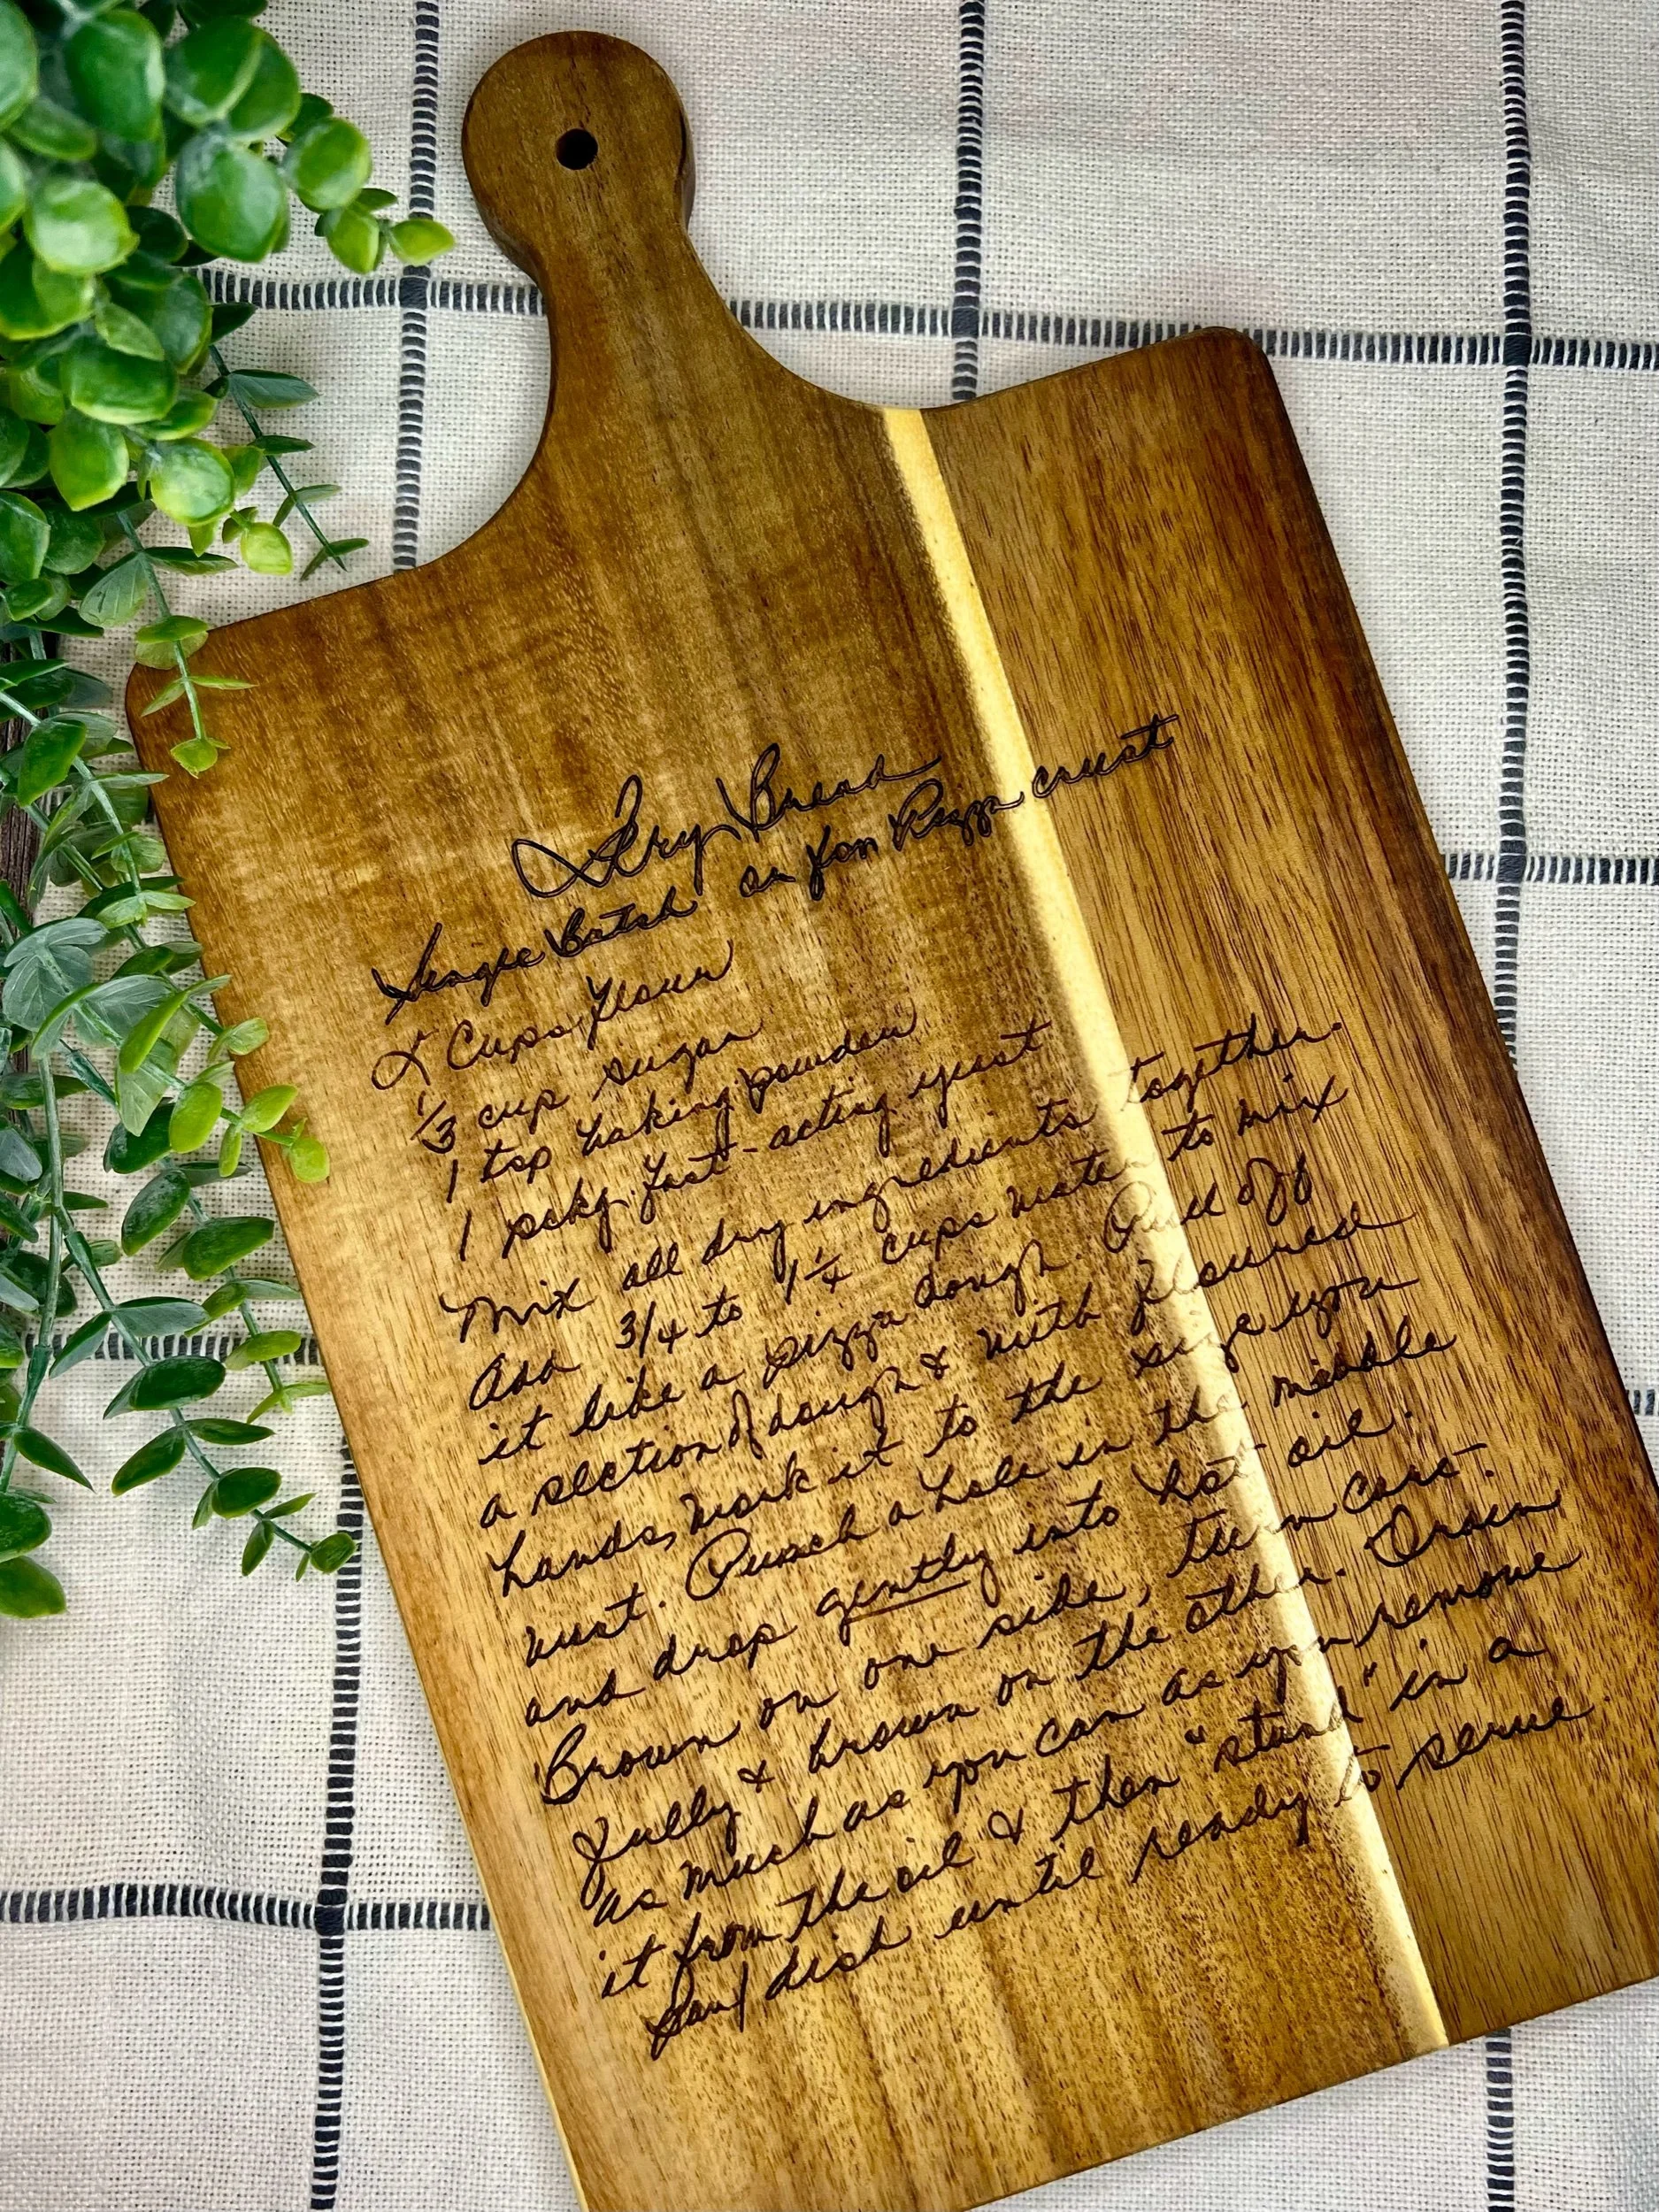 Fry Bread
Single Batch or for Pizza crust
2 Cups Flour
1/3 cup sugar
1 tsp baking powder
1 pckg. fast-acting yeast
Mix all dry ingredients together.
Add 3/4 to 1 1/4 cups water to mix
it like a pizza dough. Pull off
a section of dough & with floured
hands, work it to the size you
want. Punch a hole in the middle
and drop gently into hot oil.
Brown on one side, turn care-
fully & brown on the other. Drain
as much as you can as you remove
it from the oil & then "stand" in a
pan/dish until ready to serve.